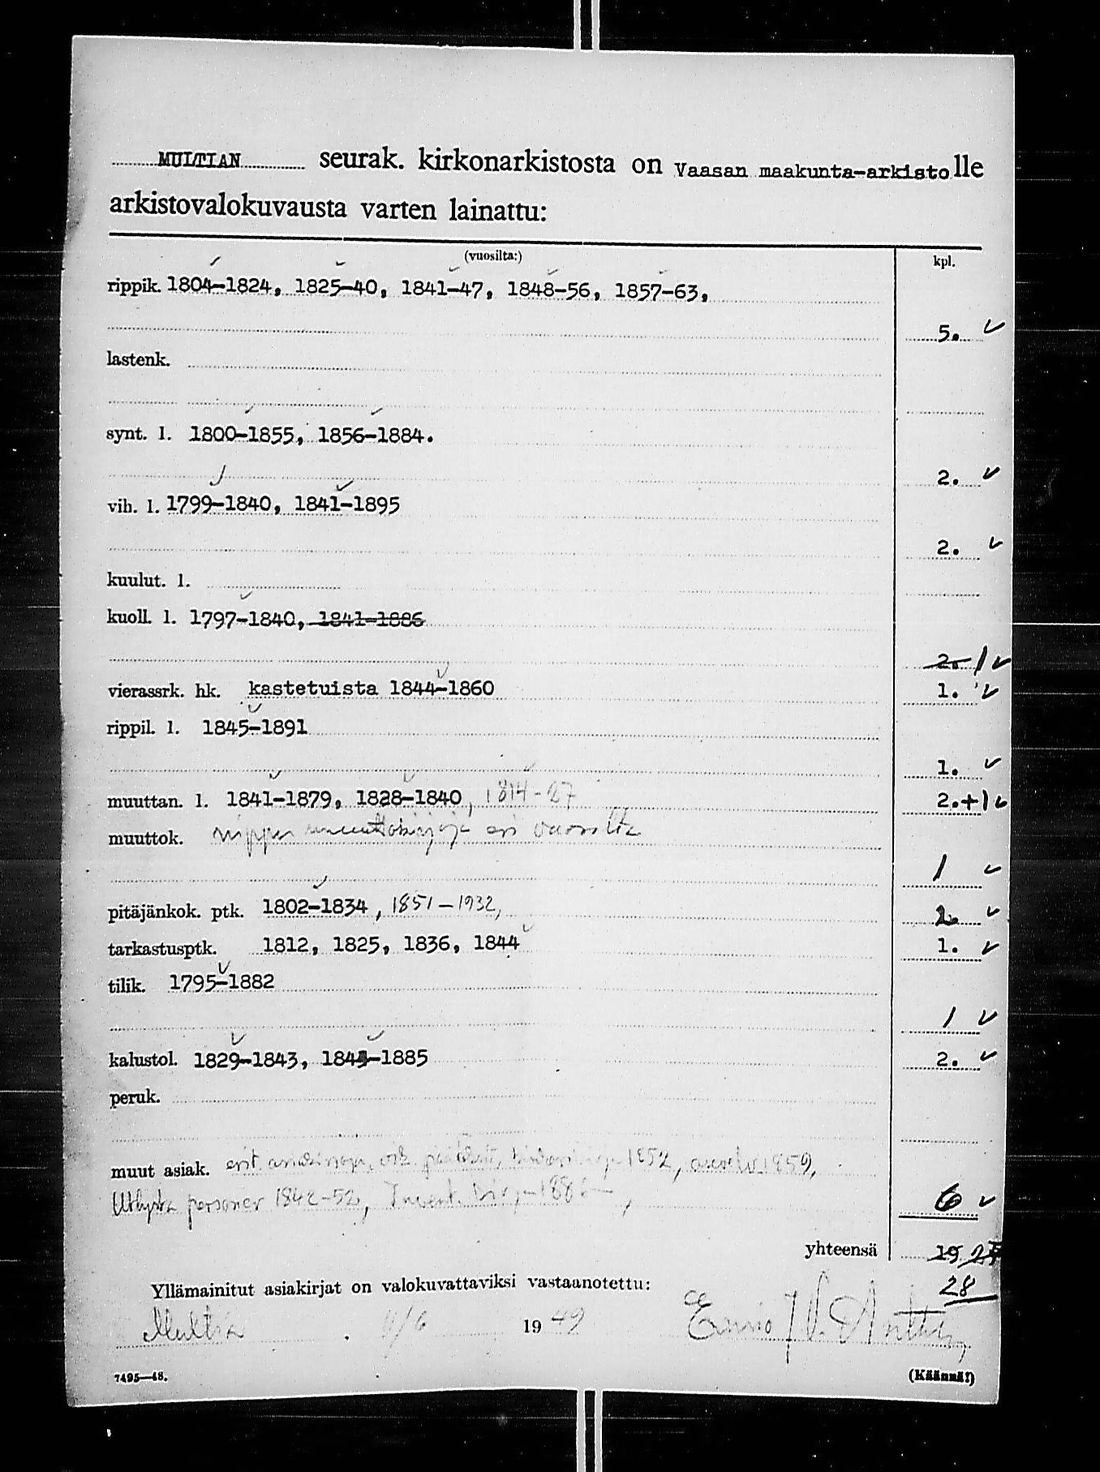 MULTIAN seurak. kirkonarkistosta on Vaasan maakunta-arkistolle
arkistovalokuvausta varten lainattu:
(vuosilta:) kpl.
rippik. 1804-1824, 1825-40, 1841-47, 1848-56, 1857-63,
5.
lastenk.
synt. l. 1800-1855, 1856-1884.
2.
vih. l. 1799-1840, 1841-1895
2.
kuulut. l.
kuoll. l. 1797-1840, 1841-1886
2. 1
vierassrk. hk. kastetuista 1844-1860 1.
rippil. l. 1845-1891
1.
muuttan. l. 1841-1879, 1828-1840, 1814-27 2.+1
muuttok. nippu muuttokirjoja eri vuosilta
1
pitäjänkok. ptk. 1802-1834, 1851-1932,
tarkastusptk. 1812, 1825, 1836, 1844 1.
tilik. 1795-1882
1
kalustol. 1829-1843, 1844-1885 2.
peruk.
muut asiak. erit. 1852, 1859,
personer 1842-52, Invent.
6
yhteensä 19
28
Yllämainitut asiakirjat on valokuvattaviksi vastaanotettu:
Multia 1949
7495—48. (Käännä!)